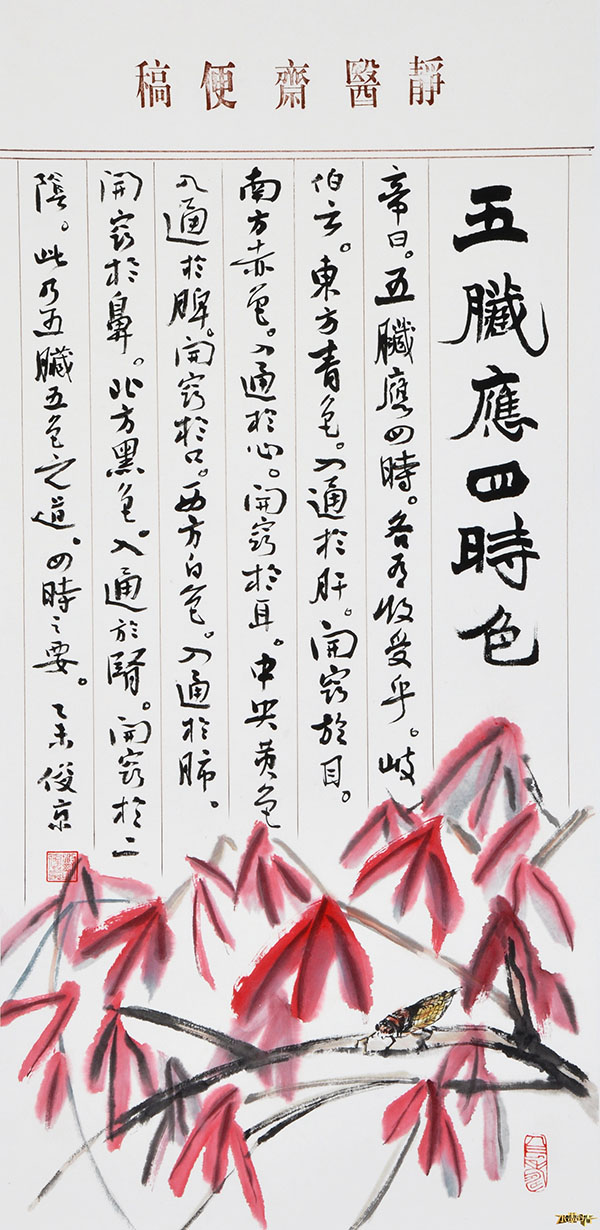 靜醫齋便稿
五臟應四時色
帝曰。五臟應四時。各有收受乎。岐
伯云。東方青色。入通於肝。開竅於目。
南方赤色。入通於心。開竅於耳。中央黄色
入通於脾。開竅於口。西方白色。入通於肺。
開竅於鼻。北方黑色。入通於腎。開竅於二
陰。此乃五臟五色之道。四時之要。乙未俊京